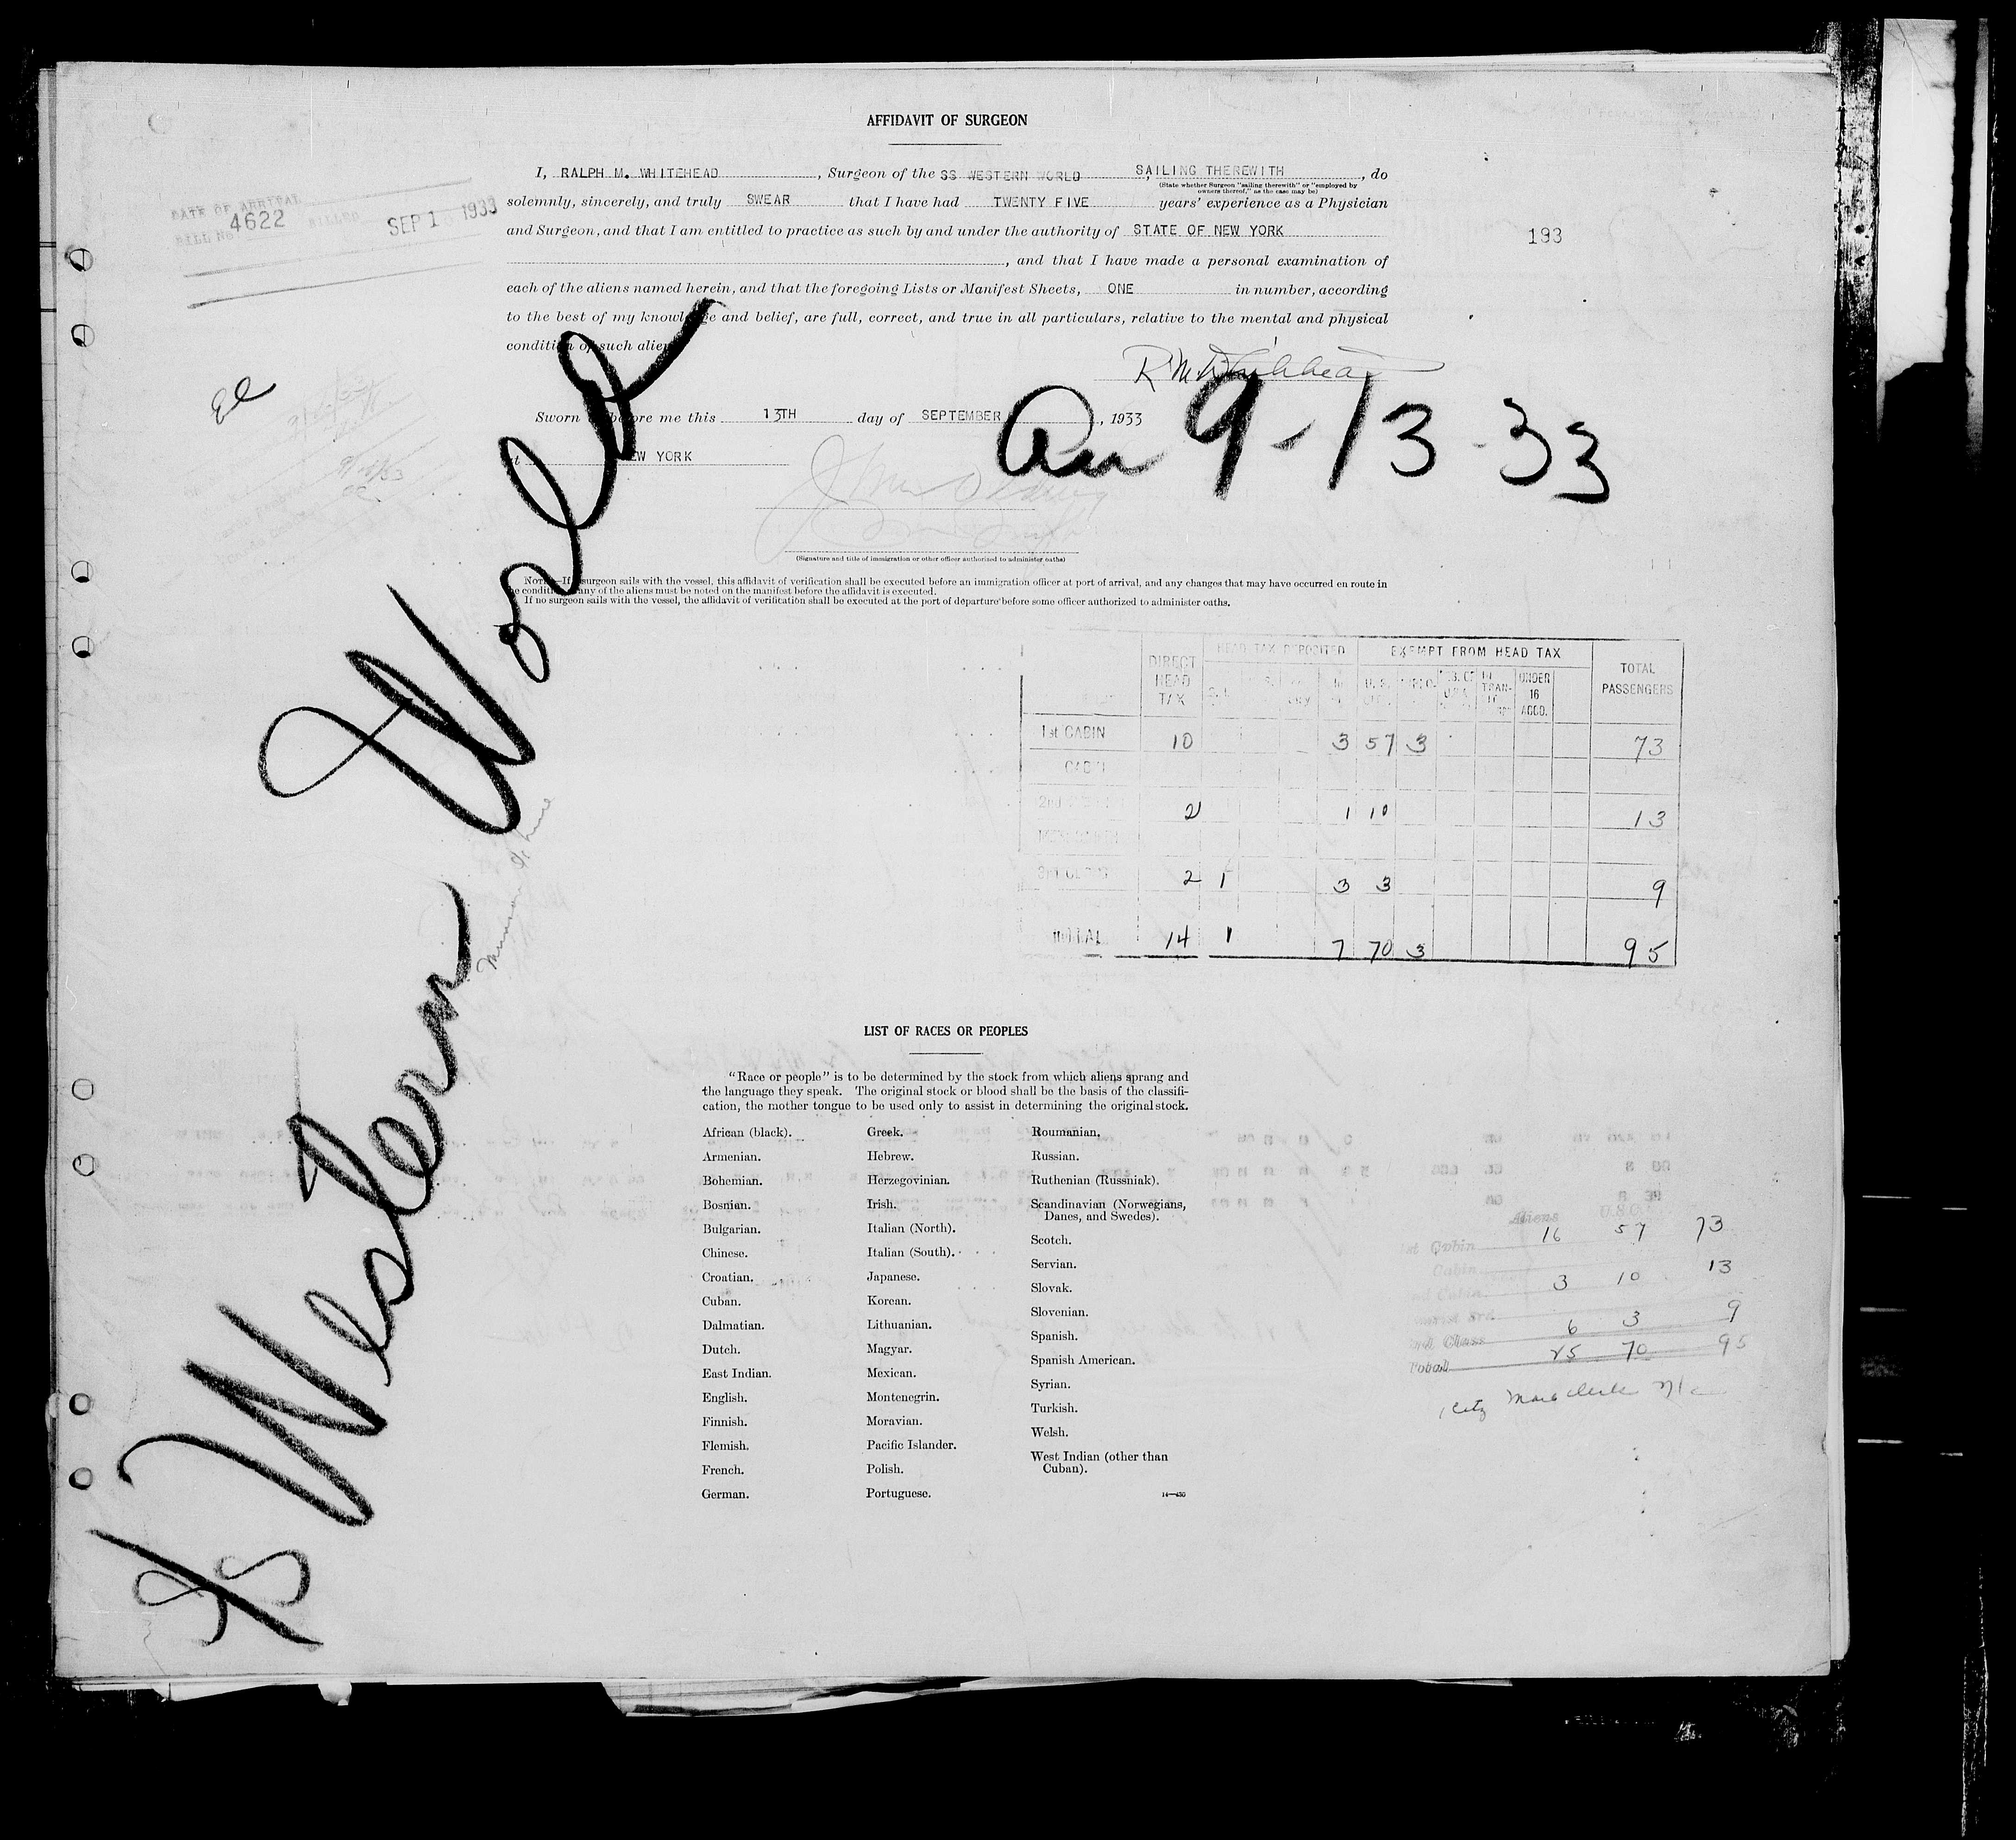 AFFIDAVIT OF SURGEON
I, RALPH M. WHITEHEAD, Surgeon of the SS WESTERN WORLD SAILING THEREWITH, do
(State whether Surgeon "sailing therewith" or "employed by
owners thereof," as the case may be)
solemnly, sincerely, and truly SWEAR that I have had TWENTY FIVE years' experience as a Physician
and Surgeon, and that I am entitled to practice as such by and under the authority of STATE OF NEW YORK
, and that I have made a personal examination of
each of the aliens named herein, and that the foregoing Lists or Manifest Sheets, ONE in number, according
to the best of my knowledge and belief, are full, correct, and true in all particulars, relative to the mental and physical
condition of such aliens
DATE OF ARRIVAL
BILL No 4622 BILLED SEP 1 1933
193
R M Whitehead
Sworn before me this 13TH day of SEPTEMBER, 1933
at NEW YORK
Arr 9-13-33
(Signature and title of immigration or other officer authorized to administer oaths)
NOTE.—If surgeon sails with the vessel, this affidavit of verification shall be executed before an immigration officer at port of arrival, and any changes that may have occurred en route in
the condition any of the aliens must be noted on the manifest before the affidavit is executed.
If no surgeon sails with the vessel, the affidavit of verification shall be executed at the port of departure before some officer authorized to administer oaths.
SS Western World
Munson St. Line
DIRECT HEAD TAX HEAD TAX DEPOSITED EXEMPT FROM HEAD TAX TOTAL PASSENGERS
UNDER 16 ACCO.
1st CABIN 10 3 57 3 73
CABIN
2nd 2 1 10 13
3rd CLASS 2 1 3 3 9
TOTAL 14 1 7 70 3 95
LIST OF RACES OR PEOPLES
"Race or people" is to be determined by the stock from which aliens sprang and
the language they speak. The original stock or blood shall be the basis of the classifi-
cation, the mother tongue to be used only to assist in determining the original stock.
African (black).
Armenian.
Bohemian.
Bosnian.
Bulgarian.
Chinese.
Croatian.
Cuban.
Dalmatian.
Dutch.
East Indian.
English.
Finnish.
Flemish.
French.
German.
Greek.
Hebrew.
Herzegovinian.
Irish.
Italian (North).
Italian (South).
Japanese.
Korean.
Lithuanian.
Magyar.
Mexican.
Montenegrin.
Moravian.
Pacific Islander.
Polish.
Portuguese.
Roumanian.
Russian.
Ruthenian (Russniak).
Scandinavian (Norwegians,
Danes, and Swedes).
Scotch.
Servian.
Slovak.
Slovenian.
Spanish.
Spanish American.
Syrian.
Turkish.
Welsh.
West Indian (other than
Cuban).
14—430
Aliens U.S.C.
1st Cabin 16 57 73
Cabin
2nd Cabin 3 10 13
Tourist 3rd
3rd Class 6 3 9
Total 25 70 95